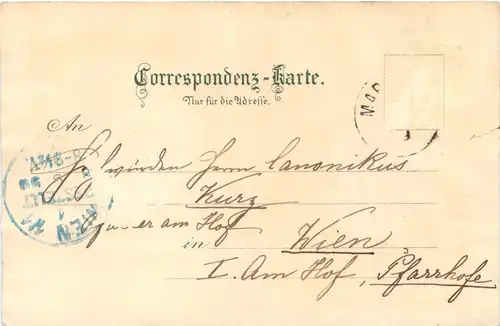 Correspondenz-Karte.
Nur für die Adresse.
An
würden Herrn Canonikus
Kurz
am Hof
in Wien
I. Am Hof, Pfarrhofe